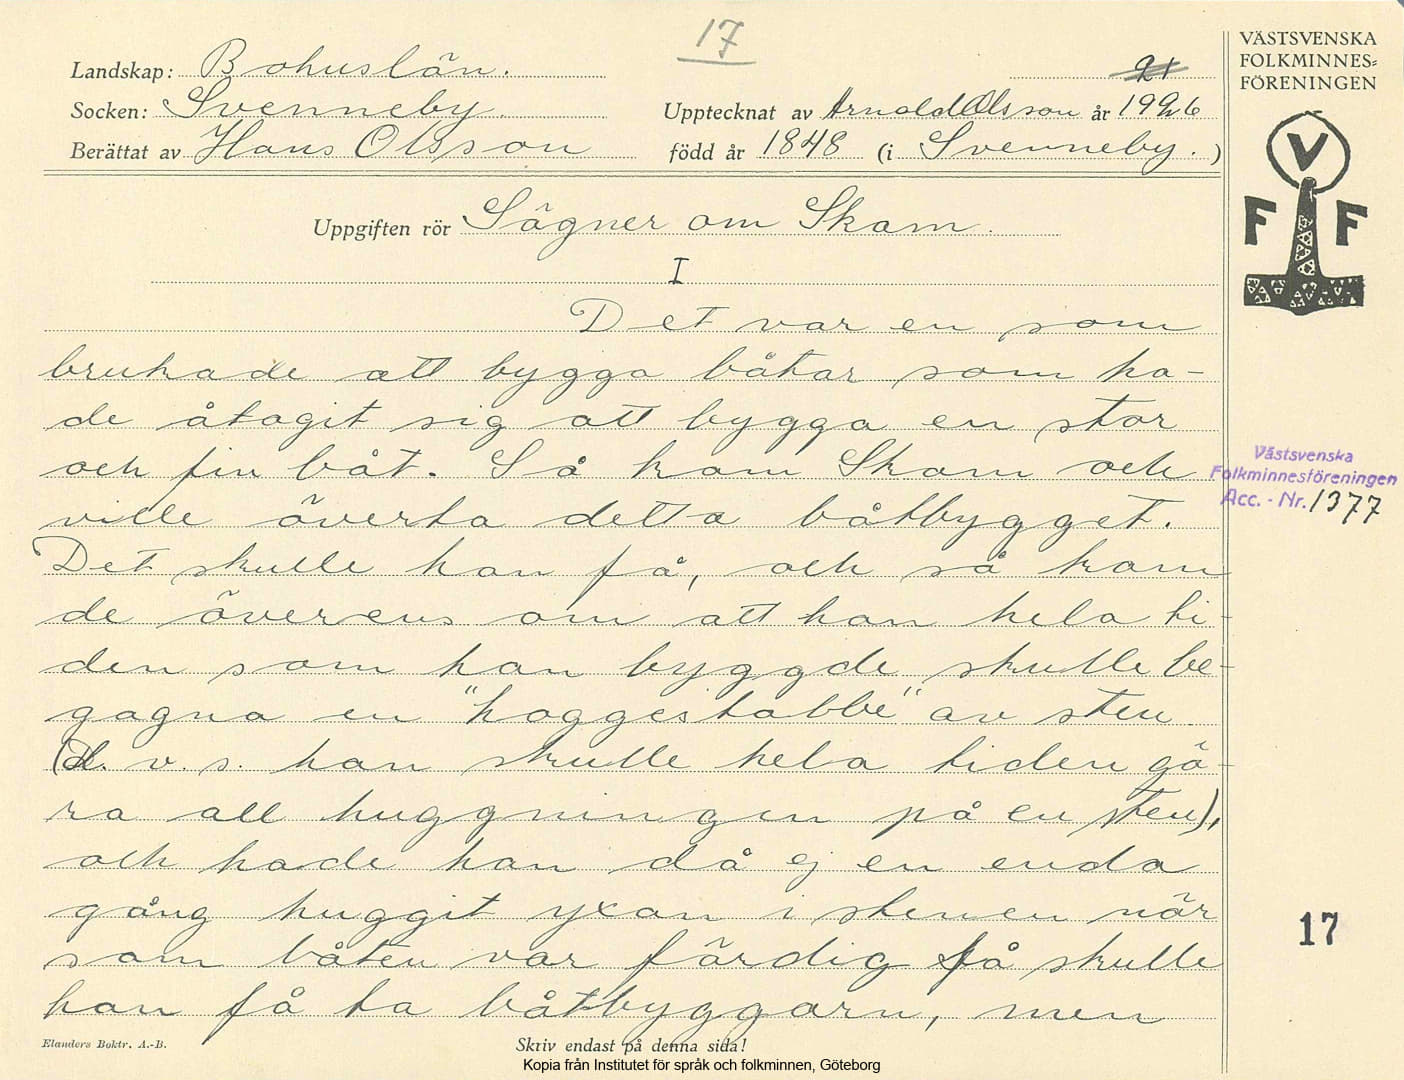 17
Landskap: Bohuslän.
21
Socken: Svenneby. Upptecknat av Arnold Olsson år 1926
Berättat av Hans Olsson född år 1848 (i Svenneby.)
Uppgiften rör Sägner om Skam.
I
Det var en som
brukade att bygga båtar som ha-
de åtagit sig att bygga en stor
och fin båt. Så kom Skam och
ville överta detta båtbygget.
Det skulle han få, och så kom
de överens om att han hela ti-
den som han byggde skulle be-
gagna en "hoggestabbe" av sten
(d. v. s. han skulle hela tiden gö-
ra all huggningen på en sten),
och hade han då ej en enda
gång huggit yxan i stenen när
som båten var färdig så skulle
han få ta båtbyggarn, men
Elanders Boktr. A.-B.
Skriv endast på denna sida!
Kopia från Institutet för språk och folkminnen, Göteborg
VÄSTSVENSKA
FOLKMINNES=
FÖRENINGEN
V
F F
Västsvenska
Folkminnesföreningen
Acc. - Nr. 1377
17